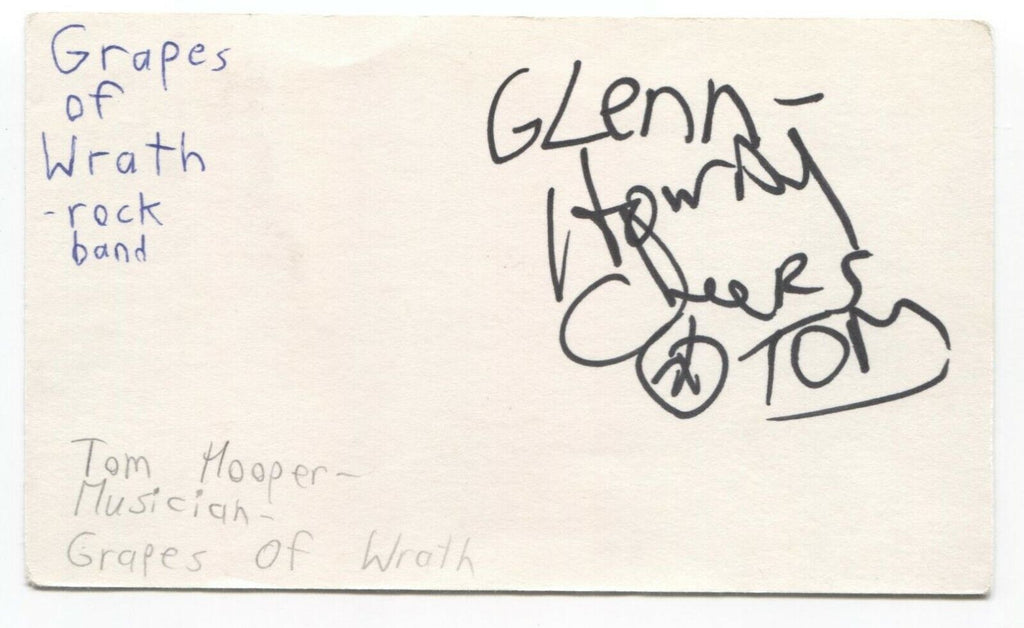 Grapes
of
Wrath
-rock
band
GLenn-
Howdy
Cheers
TOM
Tom Hooper-
Musician-
Grapes Of Wrath